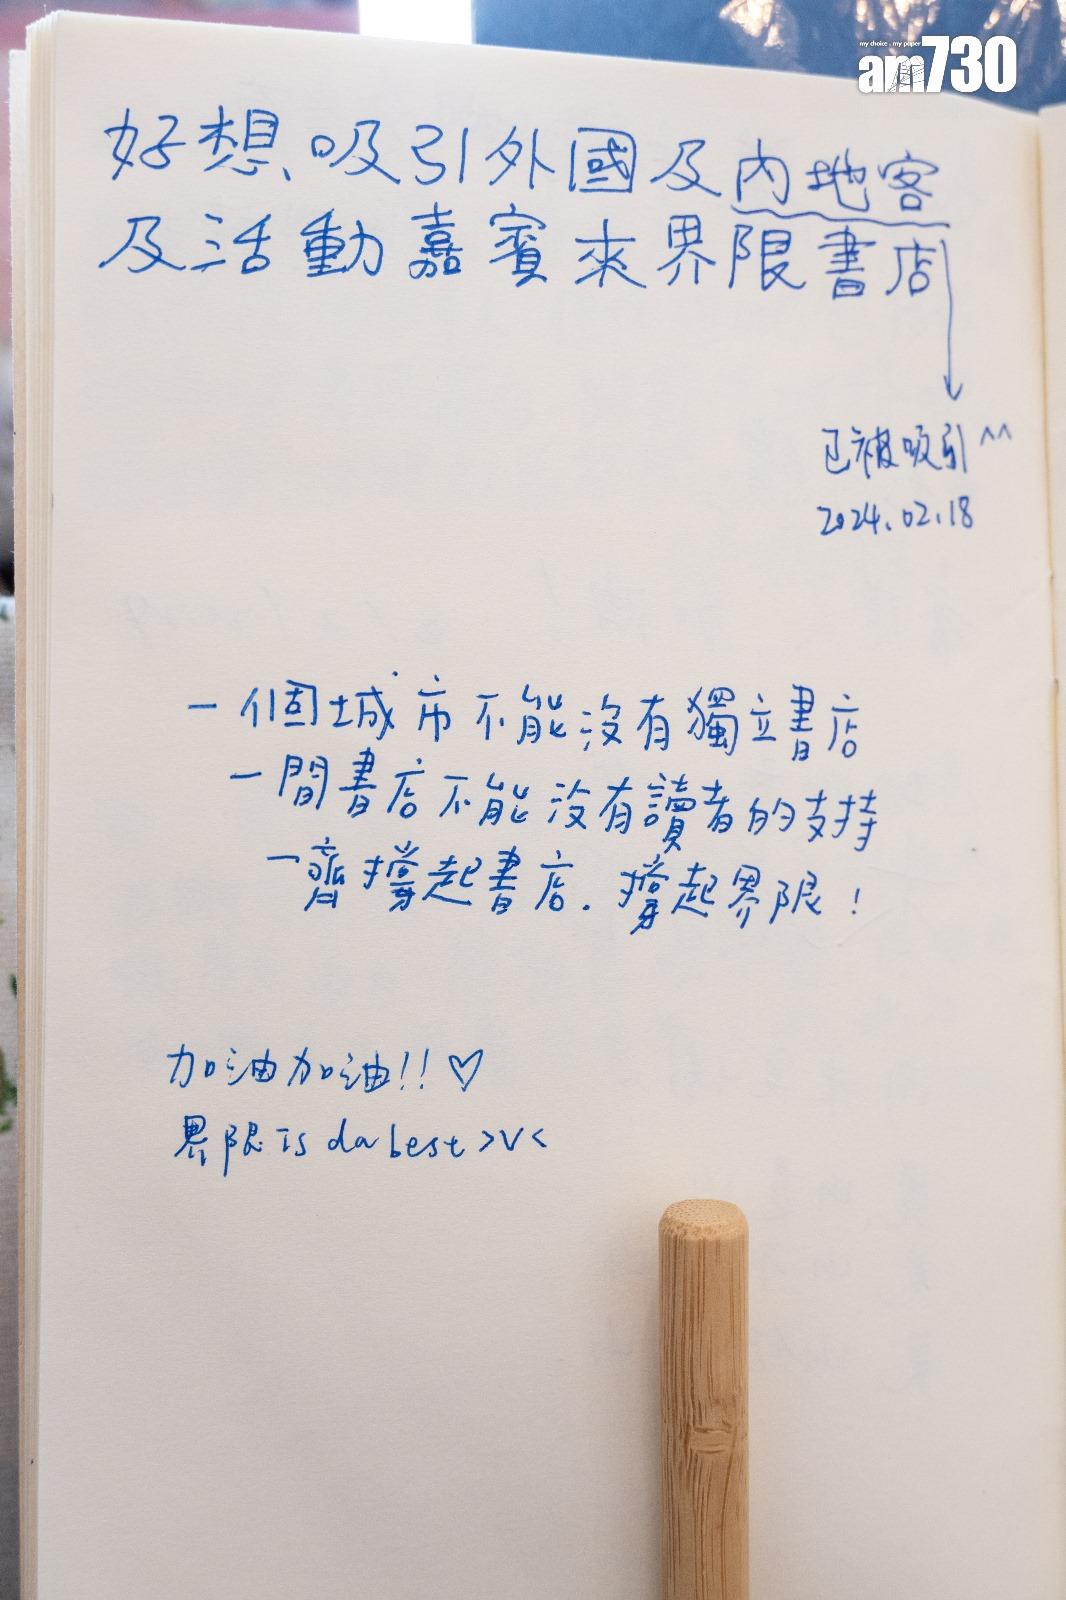 my choice . my paper
am730
好想、吸引外國及內地客
及活動嘉賓來界限書店
已被吸引^^
2024.02.18
一個城市不能沒有獨立書店
一間書店不能沒有讀者的支持
一齊撐起書店．撐起界限！
加油加油!!♡
界限 is da best >v<